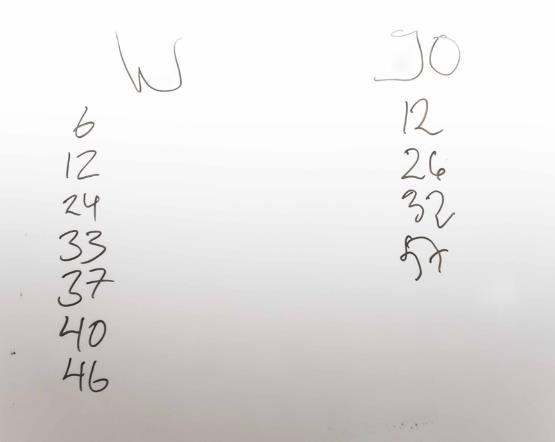 W JO
6 12
12 26
24 32
33
37
40
46